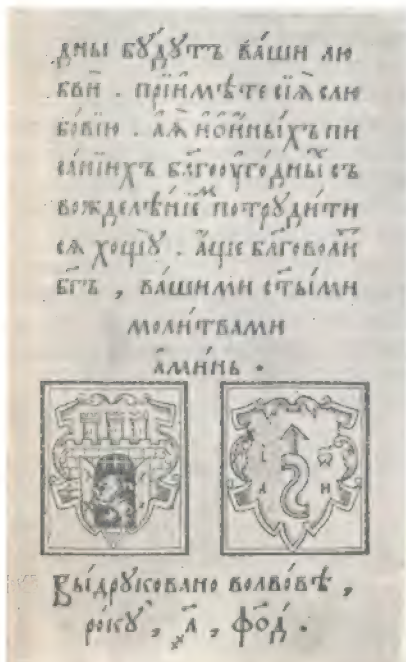 дны бꙋ́дꙋтъ ва́ши лю
бви̂ . прїимѣ́те сїѧ̀ слю
бо́вїю . а҆́ѧ҆̀ и҆ѻ҆и҆ны́хъ пи
са́нїихъ бл҃гоꙋго́дныⷯ съ
вожделѣ́нїеⷨ потрꙋди́ти
сѧ хощꙋ̀ . а҆́ще бл҃говоли́ⷮ
бг҃ъ , ва́шими ст҃ы́ми
моли́твами
а҆ми́нь .
І Ѡ
А Н
Вы́дрꙋковано волво́вѣ ,
ро́кꙋ , ҂а҃ , фо҃д .